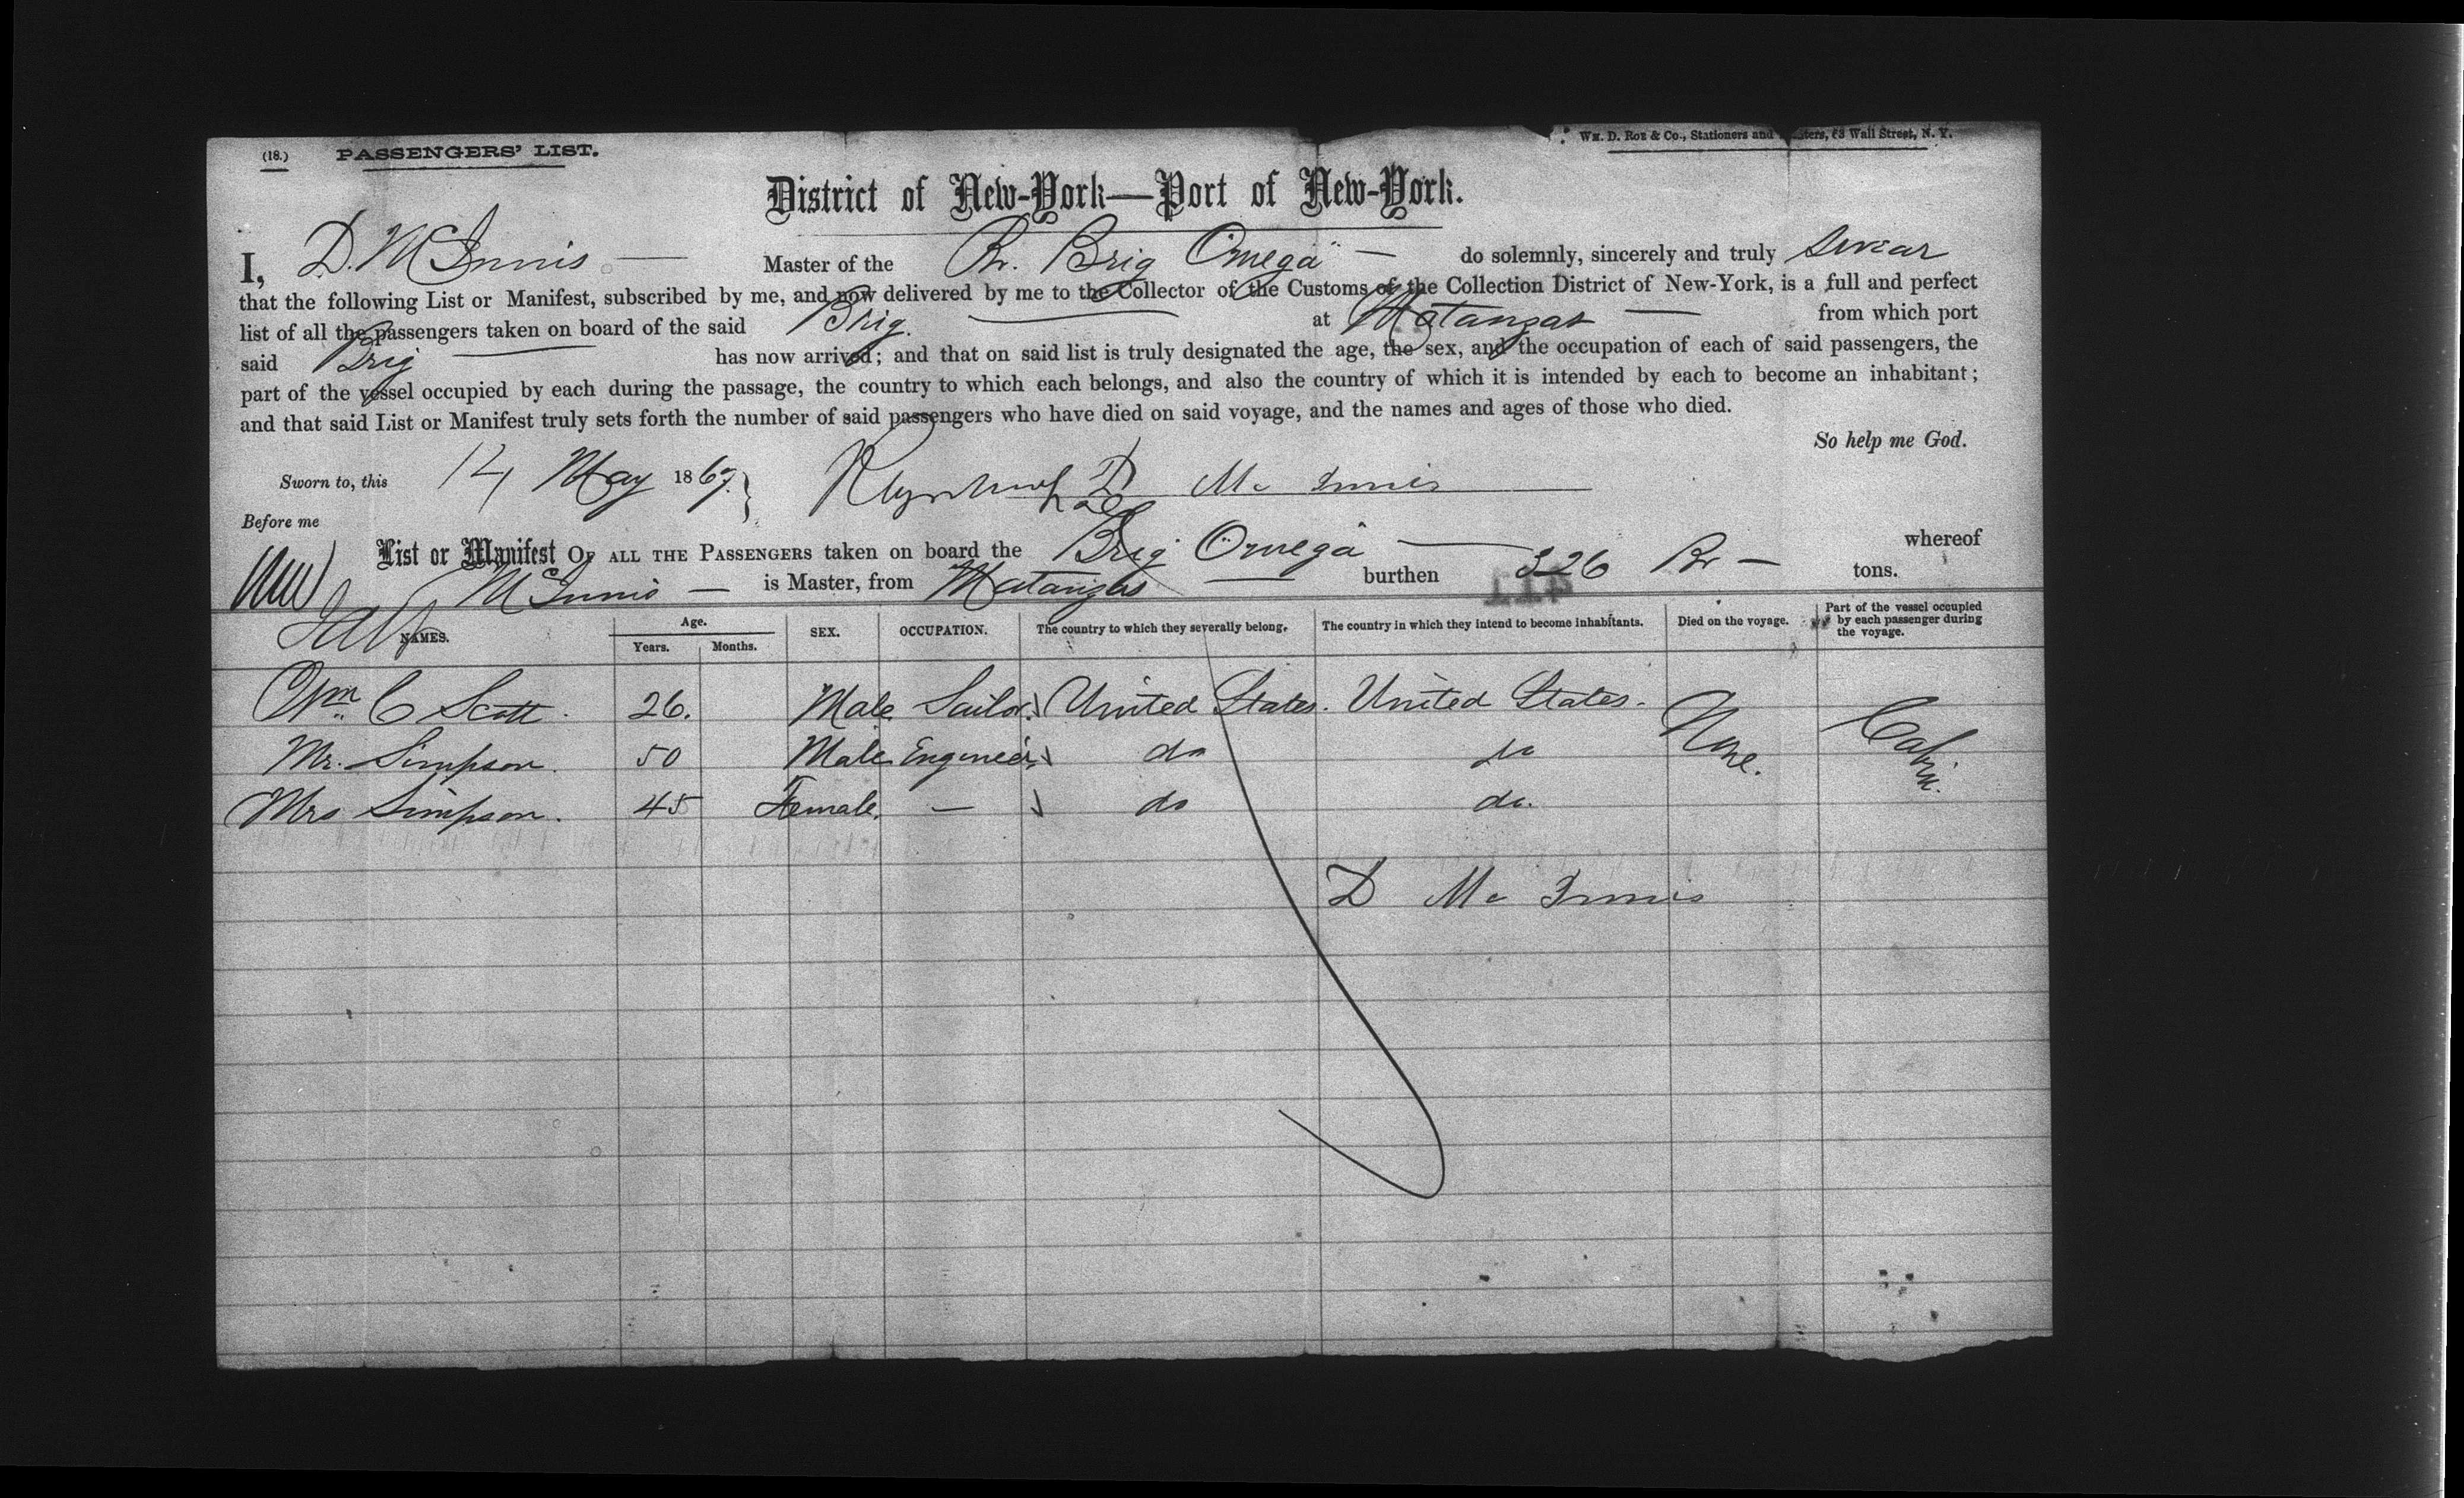 (18.) PASSENGERS' LIST.
Wm. D. Roe & Co., Stationers and Printers, 63 Wall Street, N. Y.
District of New-York—Port of New-York.
I, D. McInnis — Master of the Br. Brig Omega — do solemnly, sincerely and truly swear
that the following List or Manifest, subscribed by me, and now delivered by me to the Collector of the Customs of the Collection District of New-York, is a full and perfect
list of all the passengers taken on board of the said Brig. — at Matanzas — from which port
said Brig — has now arrived; and that on said list is truly designated the age, the sex, and the occupation of each of said passengers, the
part of the vessel occupied by each during the passage, the country to which each belongs, and also the country of which it is intended by each to become an inhabitant;
and that said List or Manifest truly sets forth the number of said passengers who have died on said voyage, and the names and ages of those who died.
So help me God.
Sworn to, this 14 May 1867. D Mc Innis
Before me
List or Manifest OF ALL THE PASSENGERS taken on board the Brig Omega — whereof
McInnis — is Master, from Matanzas — burthen 326 Br — tons.
NAMES. Age. Years. Months. SEX. OCCUPATION. The country to which they severally belong. The country in which they intend to become inhabitants. Died on the voyage. Part of the vessel occupied by each passenger during the voyage.
Wm C Scott. 26. Male Sailor. United States. United States. None. Cabin.
Mr. Simpson. 50 Male. Engineer. do do
Mrs Simpson. 45 Female. — do do.
D Mc Innis